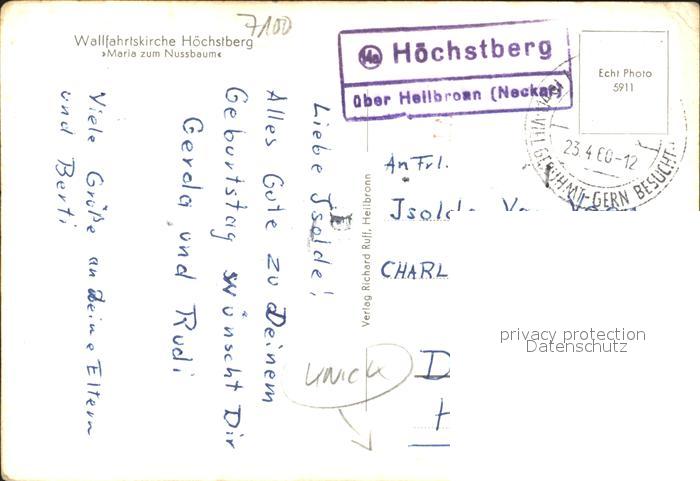 7100
Wallfahrtskirche Höchstberg
»Maria zum Nussbaum«
14a Höchstberg
über Heilbronn (Neckar)
Echt Photo
5911
23.4.60-12
VIELGERÜHMT-GERN BESUCHT
Liebe Isolde!
Alles Gute zu Deinem
Geburtstag wünscht Dir
Gerda und Rudi
Viele Grüße an Deine Eltern
und Berti
Verlag Richard Ruff, Heilbronn
An Frl.
Isolde
CHARL
D
H
privacy protection
Datenschutz